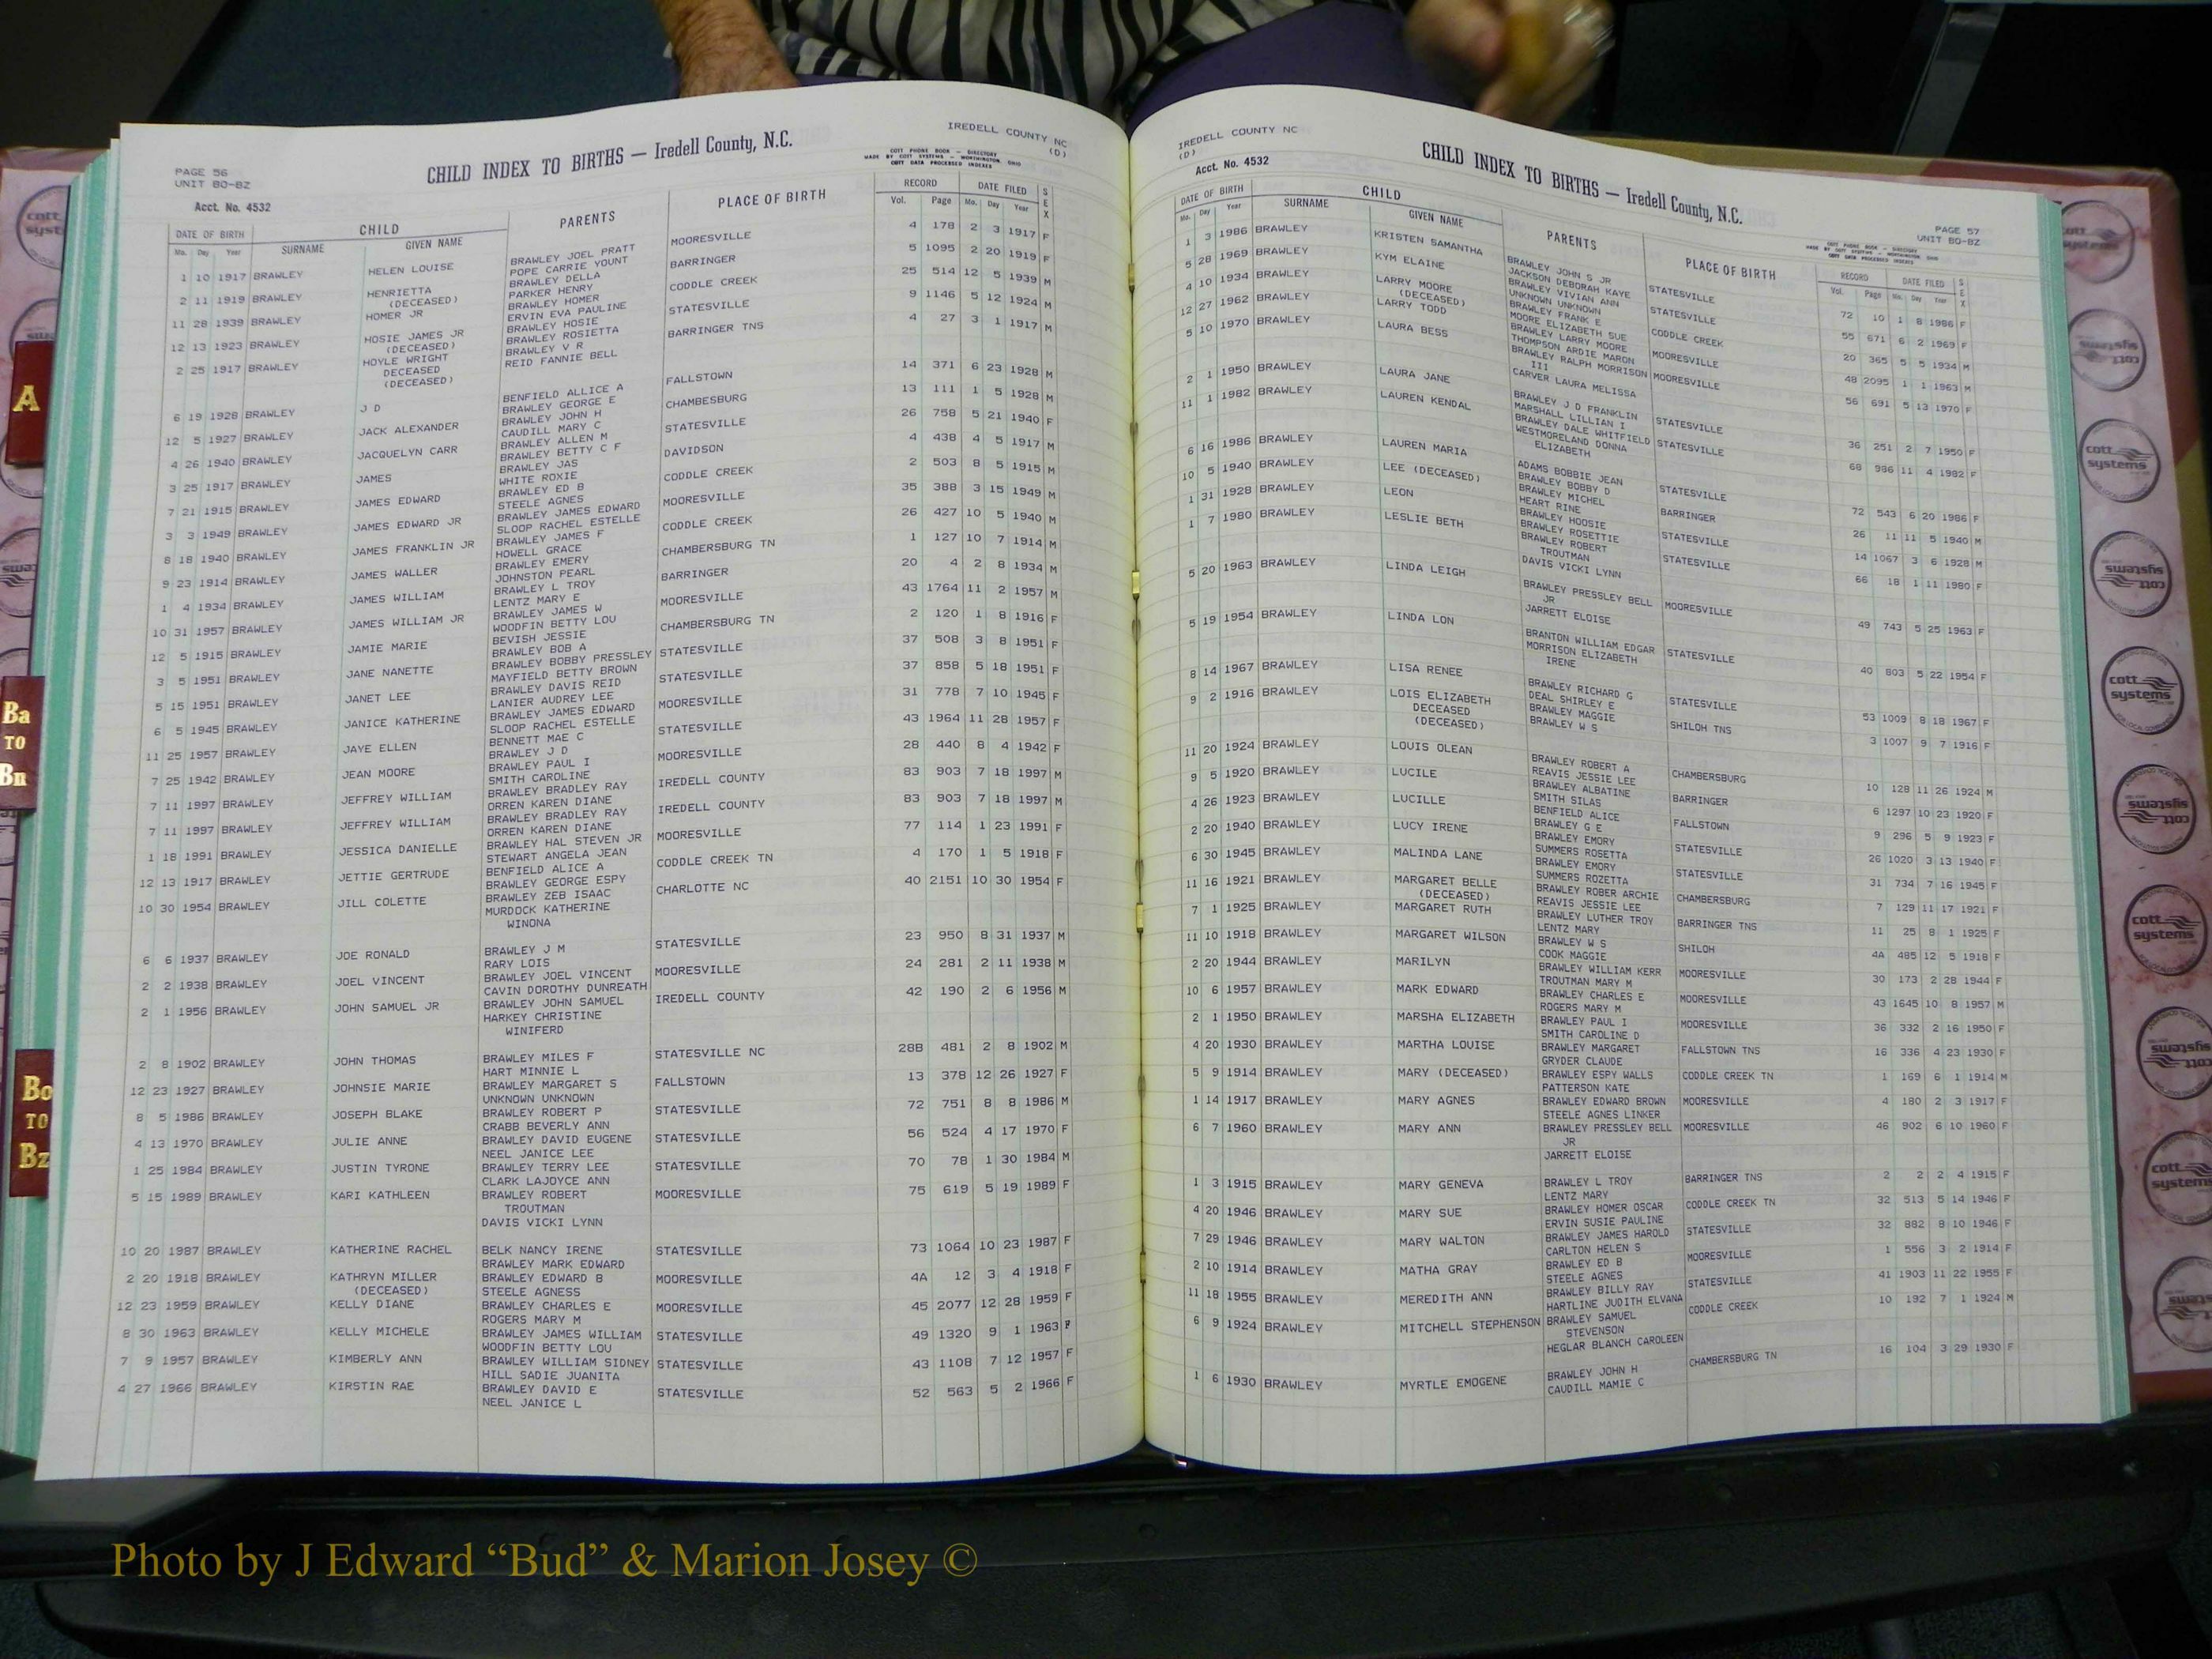 IREDELL COUNTY NC
(D)
CHILD INDEX TO BIRTHS — Iredell County, N.C.
COTT PHONE BOOK — DIRECTORY
MADE BY COTT SYSTEMS — WORTHINGTON, OHIO
COTT DATA PROCESSED INDEXES
PAGE 56
UNIT BO-BZ
Acct. No. 4532
DATE OF BIRTH CHILD PARENTS PLACE OF BIRTH RECORD DATE FILED SEX
Mo. Day Year SURNAME GIVEN NAME Vol. Page Mo. Day Year
1 10 1917 BRAWLEY HELEN LOUISE BRAWLEY JOEL PRATT MOORESVILLE 4 178 2 3 1917 F
POPE CARRIE YOUNT
2 11 1919 BRAWLEY HENRIETTA BRAWLEY DELLA BARRINGER 5 1095 2 20 1919 F
(DECEASED) PARKER HENRY
11 28 1939 BRAWLEY HOMER JR BRAWLEY HOMER CODDLE CREEK 25 514 12 5 1939 M
ERVIN EVA PAULINE
12 13 1923 BRAWLEY HOSIE JAMES JR BRAWLEY HOSIE STATESVILLE 9 1146 5 12 1924 M
(DECEASED) BRAWLEY ROSIETTA
2 25 1917 BRAWLEY HOYLE WRIGHT BRAWLEY V R BARRINGER TNS 4 27 3 1 1917 M
DECEASED REID FANNIE BELL
(DECEASED)
6 19 1928 BRAWLEY J D BENFIELD ALLICE A FALLSTOWN 14 371 6 23 1928 M
BRAWLEY GEORGE E
12 5 1927 BRAWLEY JACK ALEXANDER BRAWLEY JOHN H CHAMBESBURG 13 111 1 5 1928 M
CAUDILL MARY C
4 26 1940 BRAWLEY JACQUELYN CARR BRAWLEY ALLEN M STATESVILLE 26 758 5 21 1940 F
BRAWLEY BETTY C F
3 25 1917 BRAWLEY JAMES BRAWLEY JAS DAVIDSON 4 438 4 5 1917 M
WHITE ROXIE
7 21 1915 BRAWLEY JAMES EDWARD BRAWLEY ED B CODDLE CREEK 2 503 8 5 1915 M
STEELE AGNES
3 3 1949 BRAWLEY JAMES EDWARD JR BRAWLEY JAMES EDWARD MOORESVILLE 35 388 3 15 1949 M
SLOOP RACHEL ESTELLE
8 18 1940 BRAWLEY JAMES FRANKLIN JR BRAWLEY JAMES F CODDLE CREEK 26 427 10 5 1940 M
HOWELL GRACE
9 23 1914 BRAWLEY JAMES WALLER BRAWLEY EMERY CHAMBERSBURG TN 1 127 10 7 1914 M
JOHNSTON PEARL
1 4 1934 BRAWLEY JAMES WILLIAM BRAWLEY L TROY BARRINGER 20 4 2 8 1934 M
LENTZ MARY E
10 31 1957 BRAWLEY JAMES WILLIAM JR BRAWLEY JAMES W MOORESVILLE 43 1764 11 2 1957 M
WOODFIN BETTY LOU
12 5 1915 BRAWLEY JAMIE MARIE BEVISH JESSIE CHAMBERSBURG TN 2 120 1 8 1916 F
BRAWLEY BOB A
3 5 1951 BRAWLEY JANE NANETTE BRAWLEY BOBBY PRESSLEY STATESVILLE 37 508 3 8 1951 F
MAYFIELD BETTY BROWN
5 15 1951 BRAWLEY JANET LEE BRAWLEY DAVIS REID STATESVILLE 37 858 5 18 1951 F
LANIER AUDREY LEE
6 5 1945 BRAWLEY JANICE KATHERINE BRAWLEY JAMES EDWARD MOORESVILLE 31 778 7 10 1945 F
SLOOP RACHEL ESTELLE
11 25 1957 BRAWLEY JAYE ELLEN BENNETT MAE C STATESVILLE 43 1964 11 28 1957 F
BRAWLEY J D
7 25 1942 BRAWLEY JEAN MOORE BRAWLEY PAUL I MOORESVILLE 28 440 8 4 1942 F
SMITH CAROLINE
7 11 1997 BRAWLEY JEFFREY WILLIAM BRAWLEY BRADLEY RAY IREDELL COUNTY 83 903 7 18 1997 M
ORREN KAREN DIANE
7 11 1997 BRAWLEY JEFFREY WILLIAM BRAWLEY BRADLEY RAY IREDELL COUNTY 83 903 7 18 1997 M
ORREN KAREN DIANE
1 18 1991 BRAWLEY JESSICA DANIELLE BRAWLEY HAL STEVEN JR MOORESVILLE 77 114 1 23 1991 F
STEWART ANGELA JEAN
12 13 1917 BRAWLEY JETTIE GERTRUDE BENFIELD ALICE A CODDLE CREEK TN 4 170 1 5 1918 F
BRAWLEY GEORGE ESPY
10 30 1954 BRAWLEY JILL COLETTE BRAWLEY ZEB ISAAC CHARLOTTE NC 40 2151 10 30 1954 F
MURDOCK KATHERINE
WINONA
6 6 1937 BRAWLEY JOE RONALD BRAWLEY J M STATESVILLE 23 950 8 31 1937 M
RARY LOIS
2 2 1938 BRAWLEY JOEL VINCENT BRAWLEY JOEL VINCENT MOORESVILLE 24 281 2 11 1938 M
CAVIN DOROTHY DUNREATH
2 1 1956 BRAWLEY JOHN SAMUEL JR BRAWLEY JOHN SAMUEL IREDELL COUNTY 42 190 2 6 1956 M
HARKEY CHRISTINE
WINIFERD
2 8 1902 BRAWLEY JOHN THOMAS BRAWLEY MILES F STATESVILLE NC 28B 481 2 8 1902 M
HART MINNIE L
12 23 1927 BRAWLEY JOHNSIE MARIE BRAWLEY MARGARET S FALLSTOWN 13 378 12 26 1927 F
UNKNOWN UNKNOWN
8 5 1986 BRAWLEY JOSEPH BLAKE BRAWLEY ROBERT P STATESVILLE 72 751 8 8 1986 M
CRABB BEVERLY ANN
4 13 1970 BRAWLEY JULIE ANNE BRAWLEY DAVID EUGENE STATESVILLE 56 524 4 17 1970 F
NEEL JANICE LEE
1 25 1984 BRAWLEY JUSTIN TYRONE BRAWLEY TERRY LEE STATESVILLE 70 78 1 30 1984 M
CLARK LAJOYCE ANN
5 15 1989 BRAWLEY KARI KATHLEEN BRAWLEY ROBERT MOORESVILLE 75 619 5 19 1989 F
TROUTMAN
DAVIS VICKI LYNN
10 20 1987 BRAWLEY KATHERINE RACHEL BELK NANCY IRENE STATESVILLE 73 1064 10 23 1987 F
BRAWLEY MARK EDWARD
2 20 1918 BRAWLEY KATHRYN MILLER BRAWLEY EDWARD B MOORESVILLE 4A 12 3 4 1918 F
(DECEASED) STEELE AGNESS
12 23 1959 BRAWLEY KELLY DIANE BRAWLEY CHARLES E MOORESVILLE 45 2077 12 28 1959 F
ROGERS MARY M
8 30 1963 BRAWLEY KELLY MICHELE BRAWLEY JAMES WILLIAM STATESVILLE 49 1320 9 1 1963 F
WOODFIN BETTY LOU
7 9 1957 BRAWLEY KIMBERLY ANN BRAWLEY WILLIAM SIDNEY STATESVILLE 43 1108 7 12 1957 F
HILL SADIE JUANITA
4 27 1966 BRAWLEY KIRSTIN RAE BRAWLEY DAVID E STATESVILLE 52 563 5 2 1966 F
NEEL JANICE L
IREDELL COUNTY NC
(D)
Acct. No. 4532
CHILD INDEX TO BIRTHS — Iredell County, N.C.
PAGE 57
UNIT BO-BZ
COTT PHONE BOOK — DIRECTORY
MADE BY COTT SYSTEMS — WORTHINGTON, OHIO
COTT DATA PROCESSED INDEXES
DATE OF BIRTH CHILD PARENTS PLACE OF BIRTH RECORD DATE FILED SEX
Mo. Day Year SURNAME GIVEN NAME Vol. Page Mo. Day Year
1 3 1986 BRAWLEY KRISTEN SAMANTHA BRAWLEY JOHN S JR STATESVILLE 72 10 1 8 1986 F
JACKSON DEBORAH KAYE
5 28 1969 BRAWLEY KYM ELAINE BRAWLEY VIVIAN ANN STATESVILLE 55 671 6 2 1969 F
UNKNOWN UNKNOWN
4 10 1934 BRAWLEY LARRY MOORE BRAWLEY FRANK E CODDLE CREEK 20 365 5 5 1934 M
(DECEASED) MOORE ELIZABETH SUE
12 27 1962 BRAWLEY LARRY TODD BRAWLEY LARRY MOORE MOORESVILLE 48 2095 1 1 1963 M
THOMPSON ARDIE MARON
5 10 1970 BRAWLEY LAURA BESS BRAWLEY RALPH MORRISON MOORESVILLE 56 691 5 13 1970 F
III
CARVER LAURA MELISSA
2 1 1950 BRAWLEY LAURA JANE BRAWLEY J D FRANKLIN STATESVILLE 36 251 2 7 1950 F
MARSHALL LILLIAN I
11 1 1982 BRAWLEY LAUREN KENDAL BRAWLEY DALE WHITFIELD STATESVILLE 68 986 11 4 1982 F
WESTMORELAND DONNA
ELIZABETH
6 16 1986 BRAWLEY LAUREN MARIA ADAMS BOBBIE JEAN STATESVILLE 72 543 6 20 1986 F
BRAWLEY BOBBY D
10 5 1940 BRAWLEY LEE (DECEASED) BRAWLEY MICHEL BARRINGER 26 11 11 5 1940 M
HEART RINE
1 31 1928 BRAWLEY LEON BRAWLEY HOOSIE STATESVILLE 14 1067 3 6 1928 M
BRAWLEY ROSETTIE
1 7 1980 BRAWLEY LESLIE BETH BRAWLEY ROBERT STATESVILLE 66 18 1 11 1980 F
TROUTMAN
DAVIS VICKI LYNN
5 20 1963 BRAWLEY LINDA LEIGH BRAWLEY PRESSLEY BELL MOORESVILLE 49 743 5 25 1963 F
JR
JARRETT ELOISE
5 19 1954 BRAWLEY LINDA LON BRANTON WILLIAM EDGAR STATESVILLE 40 803 5 22 1954 F
MORRISON ELIZABETH
IRENE
8 14 1967 BRAWLEY LISA RENEE BRAWLEY RICHARD G STATESVILLE 53 1009 8 18 1967 F
DEAL SHIRLEY E
9 2 1916 BRAWLEY LOIS ELIZABETH BRAWLEY MAGGIE SHILOH TNS 3 1007 9 7 1916 F
DECEASED BRAWLEY W S
(DECEASED)
11 20 1924 BRAWLEY LOUIS OLEAN BRAWLEY ROBERT A CHAMBERSBURG 10 128 11 26 1924 M
REAVIS JESSIE LEE
9 5 1920 BRAWLEY LUCILE BRAWLEY ALBATINE BARRINGER 6 1297 10 23 1920 F
SMITH SILAS
4 26 1923 BRAWLEY LUCILLE BENFIELD ALICE FALLSTOWN 9 296 5 9 1923 F
BRAWLEY G E
2 20 1940 BRAWLEY LUCY IRENE BRAWLEY EMORY STATESVILLE 26 1020 3 13 1940 F
SUMMERS ROSETTA
6 30 1945 BRAWLEY MALINDA LANE BRAWLEY EMORY STATESVILLE 31 734 7 16 1945 F
SUMMERS ROZETTA
11 16 1921 BRAWLEY MARGARET BELLE BRAWLEY ROBER ARCHIE CHAMBERSBURG 7 129 11 17 1921 F
(DECEASED) REAVIS JESSIE LEE
7 1 1925 BRAWLEY MARGARET RUTH BRAWLEY LUTHER TROY BARRINGER TNS 11 25 8 1 1925 F
LENTZ MARY
11 10 1918 BRAWLEY MARGARET WILSON BRAWLEY W S SHILOH 4A 485 12 5 1918 F
COOK MAGGIE
2 20 1944 BRAWLEY MARILYN BRAWLEY WILLIAM KERR MOORESVILLE 30 173 2 28 1944 F
TROUTMAN MARY M
10 6 1957 BRAWLEY MARK EDWARD BRAWLEY CHARLES E MOORESVILLE 43 1645 10 8 1957 M
ROGERS MARY M
2 1 1950 BRAWLEY MARSHA ELIZABETH BRAWLEY PAUL I MOORESVILLE 36 332 2 16 1950 F
SMITH CAROLINE D
4 20 1930 BRAWLEY MARTHA LOUISE BRAWLEY MARGARET FALLSTOWN TNS 16 336 4 23 1930 F
GRYDER CLAUDE
5 9 1914 BRAWLEY MARY (DECEASED) BRAWLEY ESPY WALLS CODDLE CREEK TN 1 169 6 1 1914 M
PATTERSON KATE
1 14 1917 BRAWLEY MARY AGNES BRAWLEY EDWARD BROWN MOORESVILLE 4 180 2 3 1917 F
STEELE AGNES LINKER
6 7 1960 BRAWLEY MARY ANN BRAWLEY PRESSLEY BELL MOORESVILLE 46 902 6 10 1960 F
JR
JARRETT ELOISE
1 3 1915 BRAWLEY MARY GENEVA BRAWLEY L TROY BARRINGER TNS 2 2 2 4 1915 F
LENTZ MARY
4 20 1946 BRAWLEY MARY SUE BRAWLEY HOMER OSCAR CODDLE CREEK TN 32 513 5 14 1946 F
ERVIN SUSIE PAULINE
7 29 1946 BRAWLEY MARY WALTON BRAWLEY JAMES HAROLD STATESVILLE 32 882 8 10 1946 F
CARLTON HELEN S
2 10 1914 BRAWLEY MATHA GRAY BRAWLEY ED B MOORESVILLE 1 556 3 2 1914 F
STEELE AGNES
11 18 1955 BRAWLEY MEREDITH ANN BRAWLEY BILLY RAY STATESVILLE 41 1903 11 22 1955 F
HARTLINE JUDITH ELVANA
6 9 1924 BRAWLEY MITCHELL STEPHENSON BRAWLEY SAMUEL CODDLE CREEK 10 192 7 1 1924 M
STEVENSON
HEGLAR BLANCH CAROLEEN
1 6 1930 BRAWLEY MYRTLE EMOGENE BRAWLEY JOHN H CHAMBERSBURG TN 16 104 3 29 1930 F
CAUDILL MAMIE C
A
Ba
TO
Bn
Bo
TO
Bz
cott
systems
Photo by J Edward “Bud” & Marion Josey ©